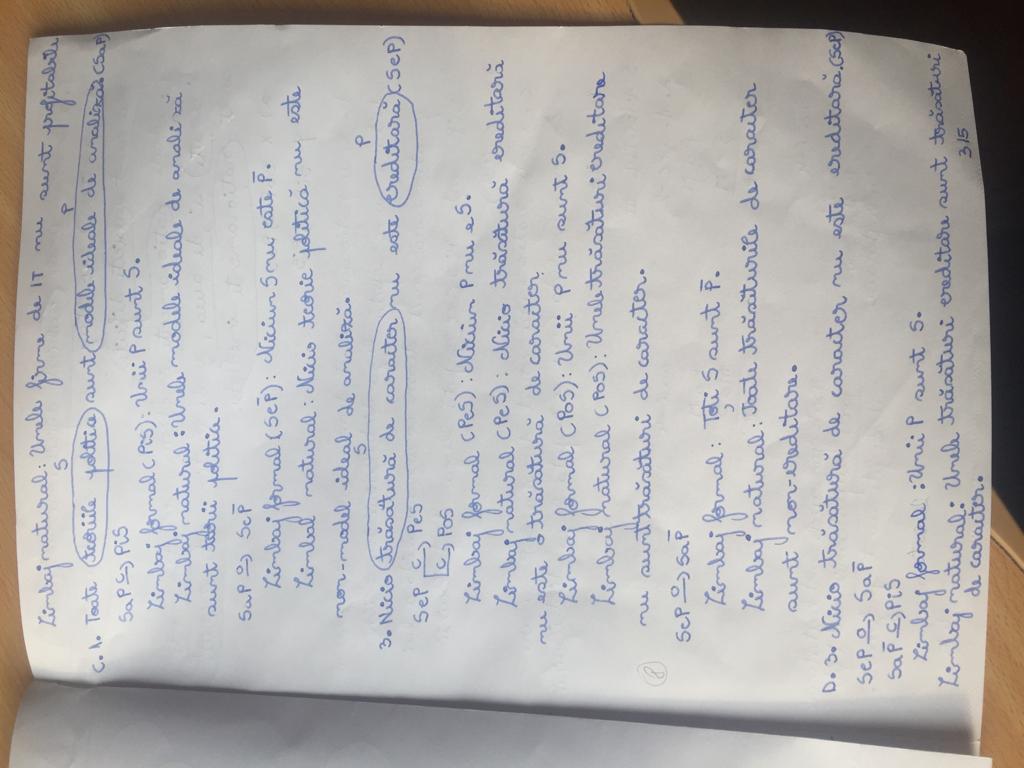 Limbaj natural: Unele firme de IT nu sunt profitabile
S P
C. 1. Toate teoriile politice sunt modele ideale de analiză (SaP)
SaP c→ PiS
Limbaj formal (PiS): Unii P sunt S.
Limbaj natural: Unele modele ideale de analiză
sunt teorii politice.
SaP o→ SeP̅
Limbaj formal (SeP̅): Niciun S nu este P̅.
Limbaj natural: Nicio teorie politică nu este
non-model ideal de analiză.
S P
3. Nicio trăsătură de caracter nu este ereditară (SeP)
SeP c→ PeS
c→ PoS
Limbaj formal (PeS): Niciun P nu e S.
Limbaj natural (PeS): Nicio trăsătură ereditară
nu este o trăsătură de caracter.
Limbaj formal (PoS): Unii P nu sunt S.
Limbaj natural (PoS): Unele trăsături ereditare
nu sunt trăsături de caracter.
SeP o→ SaP̅
Limbaj formal: Toti S sunt P̅.
Limbaj natural: Toate trăsăturile de caracter
sunt non-ereditare.
8
D. 3. Nicio trăsătură de caracter nu este ereditară (SeP)
SeP o→ SaP̅
SaP̅ c→ P̅iS
Limbaj formal: Unii P̅ sunt S.
Limbaj natural: Unele trăsături ereditare sunt trăsături
de caracter.
315